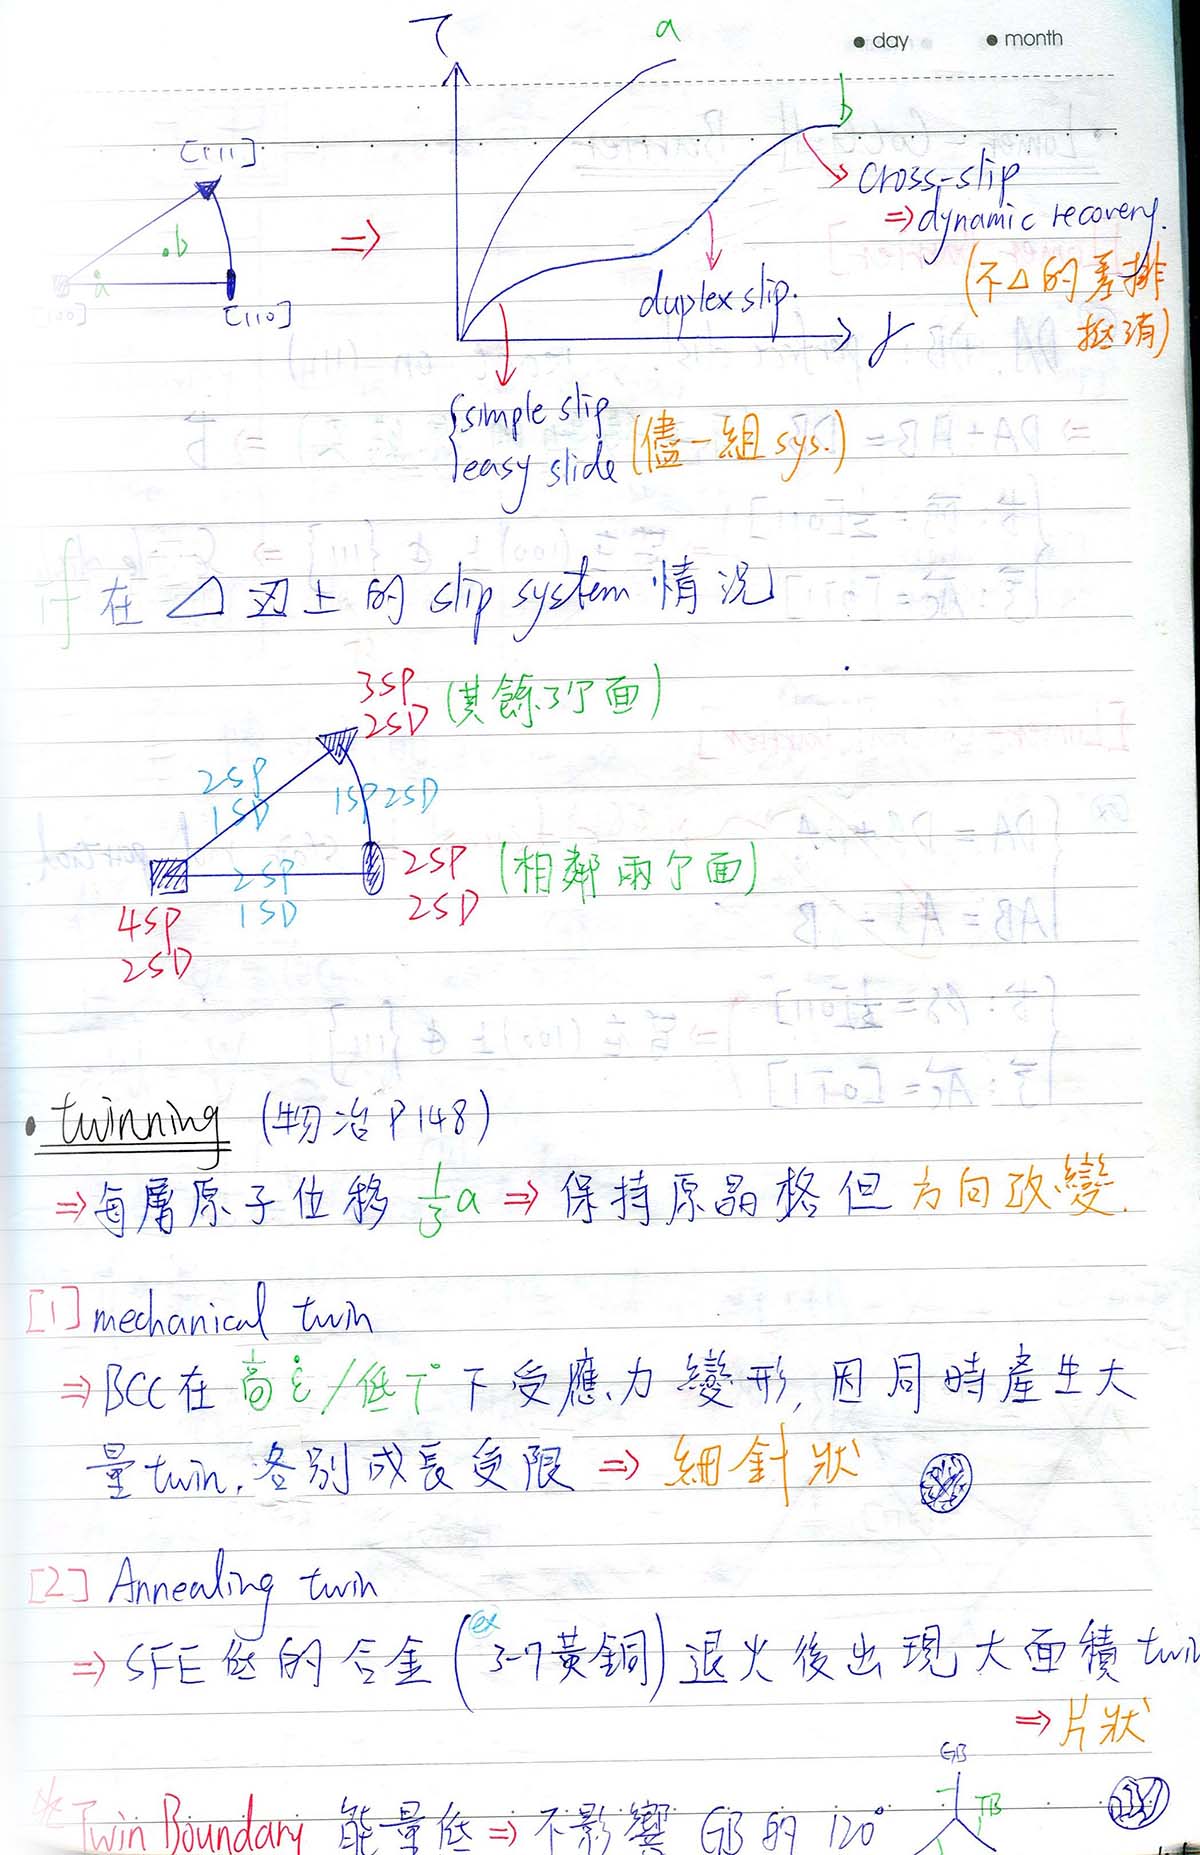 ● day ● month
τ
a
b
[111]
.b
a
[100]
[110]
⇒
cross-slip
⇒ dynamic recovery.
(不△的差排
抵消)
duplex slip.
γ
simple slip
easy slide
(儘一組 sys.)
在 △ 刃上的 slip system 情況
3SP
2SD
(其餘3个面)
2SP
1SD
1SP 2SD
2SP
1SD
2SP
2SD
(相鄰兩个面)
4SP
2SD
• twinning (物冶 P148)
⇒ 每層原子位移 1/3 a ⇒ 保持原晶格但方向改變.
[1] mechanical twin
⇒ BCC 在高 ε̇ / 低 T° 下受應力變形, 因同時產生大
量 twin, 各別成長受限 ⇒ 細針狀
[2] Annealing twin
⇒ SFE 低的合金 (ex 3-7黃銅) 退火後出現大面積 twin
⇒ 片狀
GB
TB
Twin Boundary 能量低 ⇒ 不影響 GB 的 120°